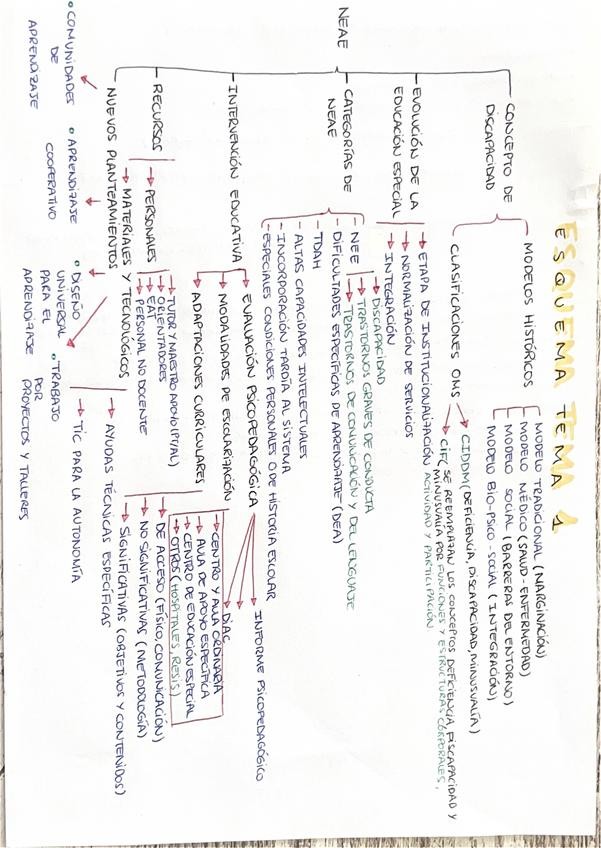 ESQUEMA TEMA 1
NEAE
CONCEPTO DE
DISCAPACIDAD
MODELOS HISTÓRICOS
MODELO TRADICIONAL (MARGINACIÓN)
MODELO MÉDICO (SALUD-ENFERMEDAD)
MODELO SOCIAL (BARRERAS DEL ENTORNO)
MODELO BIO-PSICO-SOCIAL (INTEGRACIÓN)
CLASIFICACIONES OMS
CIDDM (DEFICIENCIA, DISCAPACIDAD, MINUSVALÍA)
CIF (SE REEMPLAZAN LOS CONCEPTOS DEFICIENCIA DISCAPACIDAD Y
MINUSVALÍA POR FUNCIONES Y ESTRUCTURAS CORPORALES,
ACTIVIDAD Y PARTICIPACIÓN
EVOLUCIÓN DE LA
EDUCACIÓN ESPECIAL
ETAPA DE INSTITUCIONALIZACIÓN
NORMALIZACIÓN DE SERVICIOS
INTEGRACIÓN
CATEGORÍAS DE
NEAE
- NEE
DISCAPACIDAD
TRASTORNOS GRAVES DE CONDUCTA
TRASTORNOS DE COMUNICACIÓN Y DEL LENGUAJE
- DIFICULTADES ESPECÍFICAS DE APRENDIZAJE (DEA)
- TDAH
- ALTAS CAPACIDADES INTELECTUALES
- INCORPORACIÓN TARDÍA AL SISTEMA
- ESPECIALES CONDICIONES PERSONALES O DE HISTORIA ESCOLAR
INTERVENCIÓN EDUCATIVA
EVALUACIÓN PSICOPEDAGÓGICA
INFORME PSICOPEDAGÓGICO
DIAC
MODALIDADES DE ESCOLARIZACIÓN
CENTRO Y AULA ORDINARIA
AULA DE APOYO ESPECÍFICA
CENTRO DE EDUCACIÓN ESPECIAL
OTROS (HOSPITALES, RESIS)
ADAPTACIONES CURRICULARES
DE ACCESO (FÍSICO, COMUNICACIÓN)
NO SIGNIFICATIVAS (METODOLOGÍA)
SIGNIFICATIVAS (OBJETIVOS Y CONTENIDOS)
RECURSOS
PERSONALES
TUTOR Y MAESTRO APOYO (PT/AL)
ORIENTADORES
EAT
PERSONAL NO DOCENTE
MATERIALES Y TECNOLÓGICOS
AYUDAS TÉCNICAS ESPECÍFICAS
TIC PARA LA AUTONOMÍA
NUEVOS PLANTEAMIENTOS
• COMUNIDADES
DE
APRENDIZAJE
• APRENDIZAJE
COOPERATIVO
• DISEÑO
UNIVERSAL
PARA EL
APRENDIZAJE
• TRABAJO
POR
PROYECTOS Y TALLERES